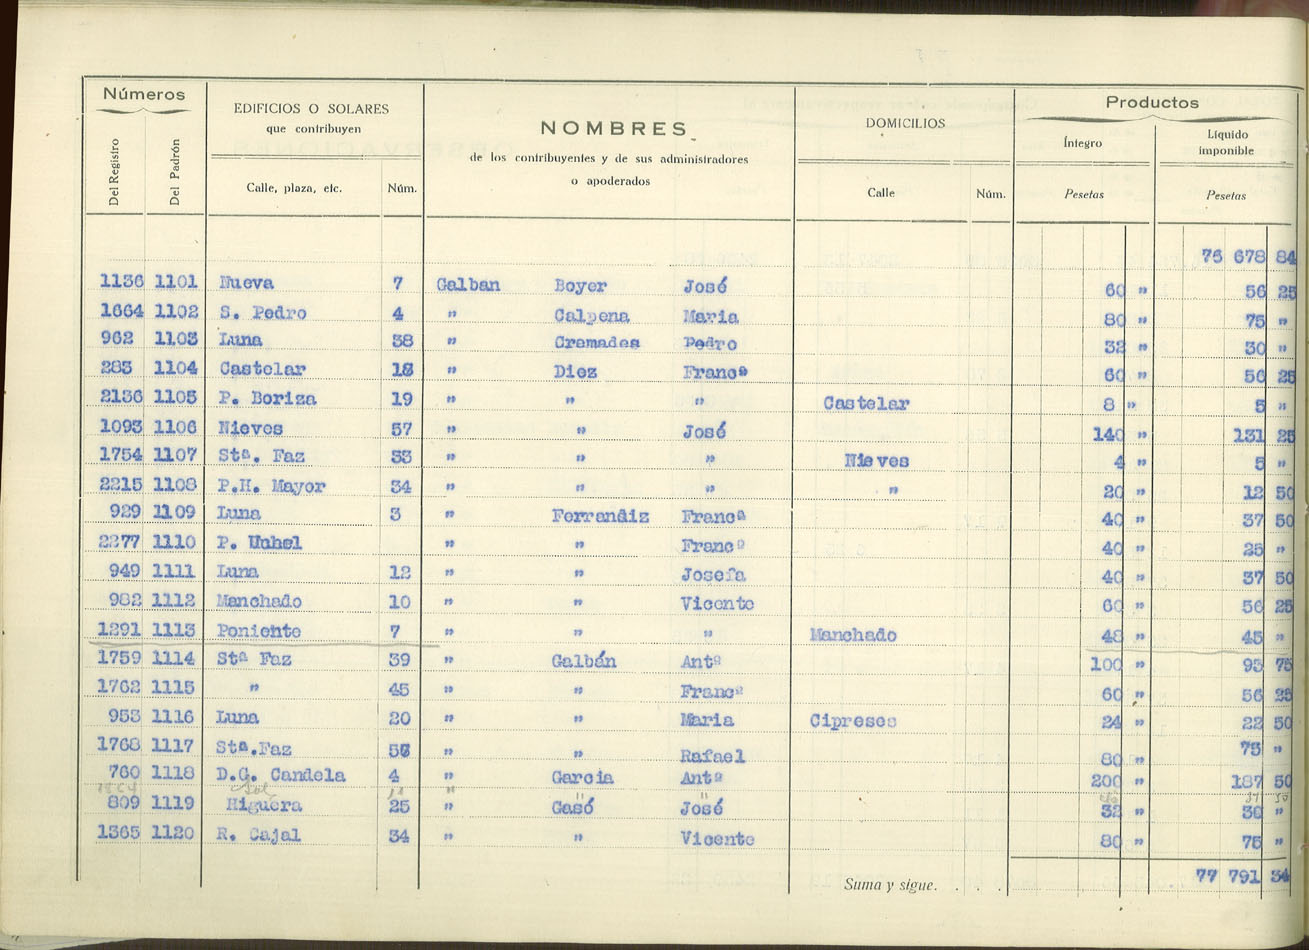 Números EDIFICIOS O SOLARES que contribuyen NOMBRES de los contribuyentes y de sus administradores o apoderados DOMICILIOS Productos
Del Registro Del Padrón Calle, plaza, etc. Núm. Calle Núm. Íntegro Pesetas Líquido imponible Pesetas
76 678 84
1136 1101 Nueva 7 Galban Boyer José 60 " 56 25
1664 1102 S. Pedro 4 " Calpena Maria 80 " 75 "
962 1103 Luna 38 " Cremades Pedro 32 " 30 "
283 1104 Castelar " Diez Francª 60 " 56 25
2136 1105 P. Boriza 19 " " " Castelar 8 " 5 "
1093 1106 Nieves 57 " " José 140 " 131 25
1754 1107 Stª. Faz 33 " " " Nieves 4 " 5 "
2215 1108 P.H. Mayor 34 " " " " 20 " 12 50
929 1109 Luna 3 " Ferrandiz Francª 40 " 37 50
2277 1110 P. " " Francº 40 " 25 "
949 1111 Luna 12 " " Josefa 40 " 37 50
982 1112 Manchado 10 " " Vicente 60 " 56 25
1291 1113 Poniente 7 " " " Manchado 48 " 45 "
1759 1114 Stª Faz 39 " Galbán Antº 100 " 93 75
1762 1115 " 45 " " Francª 60 " 56 25
953 1116 Luna 20 " " Maria Cipreses 24 " 22 50
1768 1117 Stª.Faz " " Rafael 80 " 75 "
760 1118 D.C. Candela 4 " Garcia Antº 200 " 187 50
809 1119 Higuera 25 " Gasó José 32 " 30 "
1365 1120 R. Cajal 34 " " Vicente 80 " 75 "
Suma y sigue. . . . 77 791 34